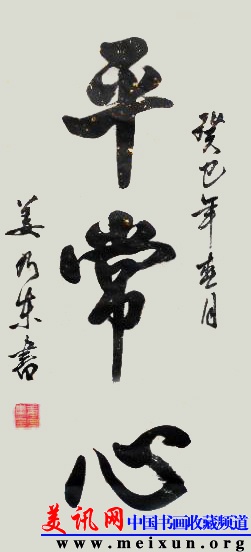 癸巳年春月
平常心
姜乃东书
美讯网中国书画收藏频道
www.meixun.org